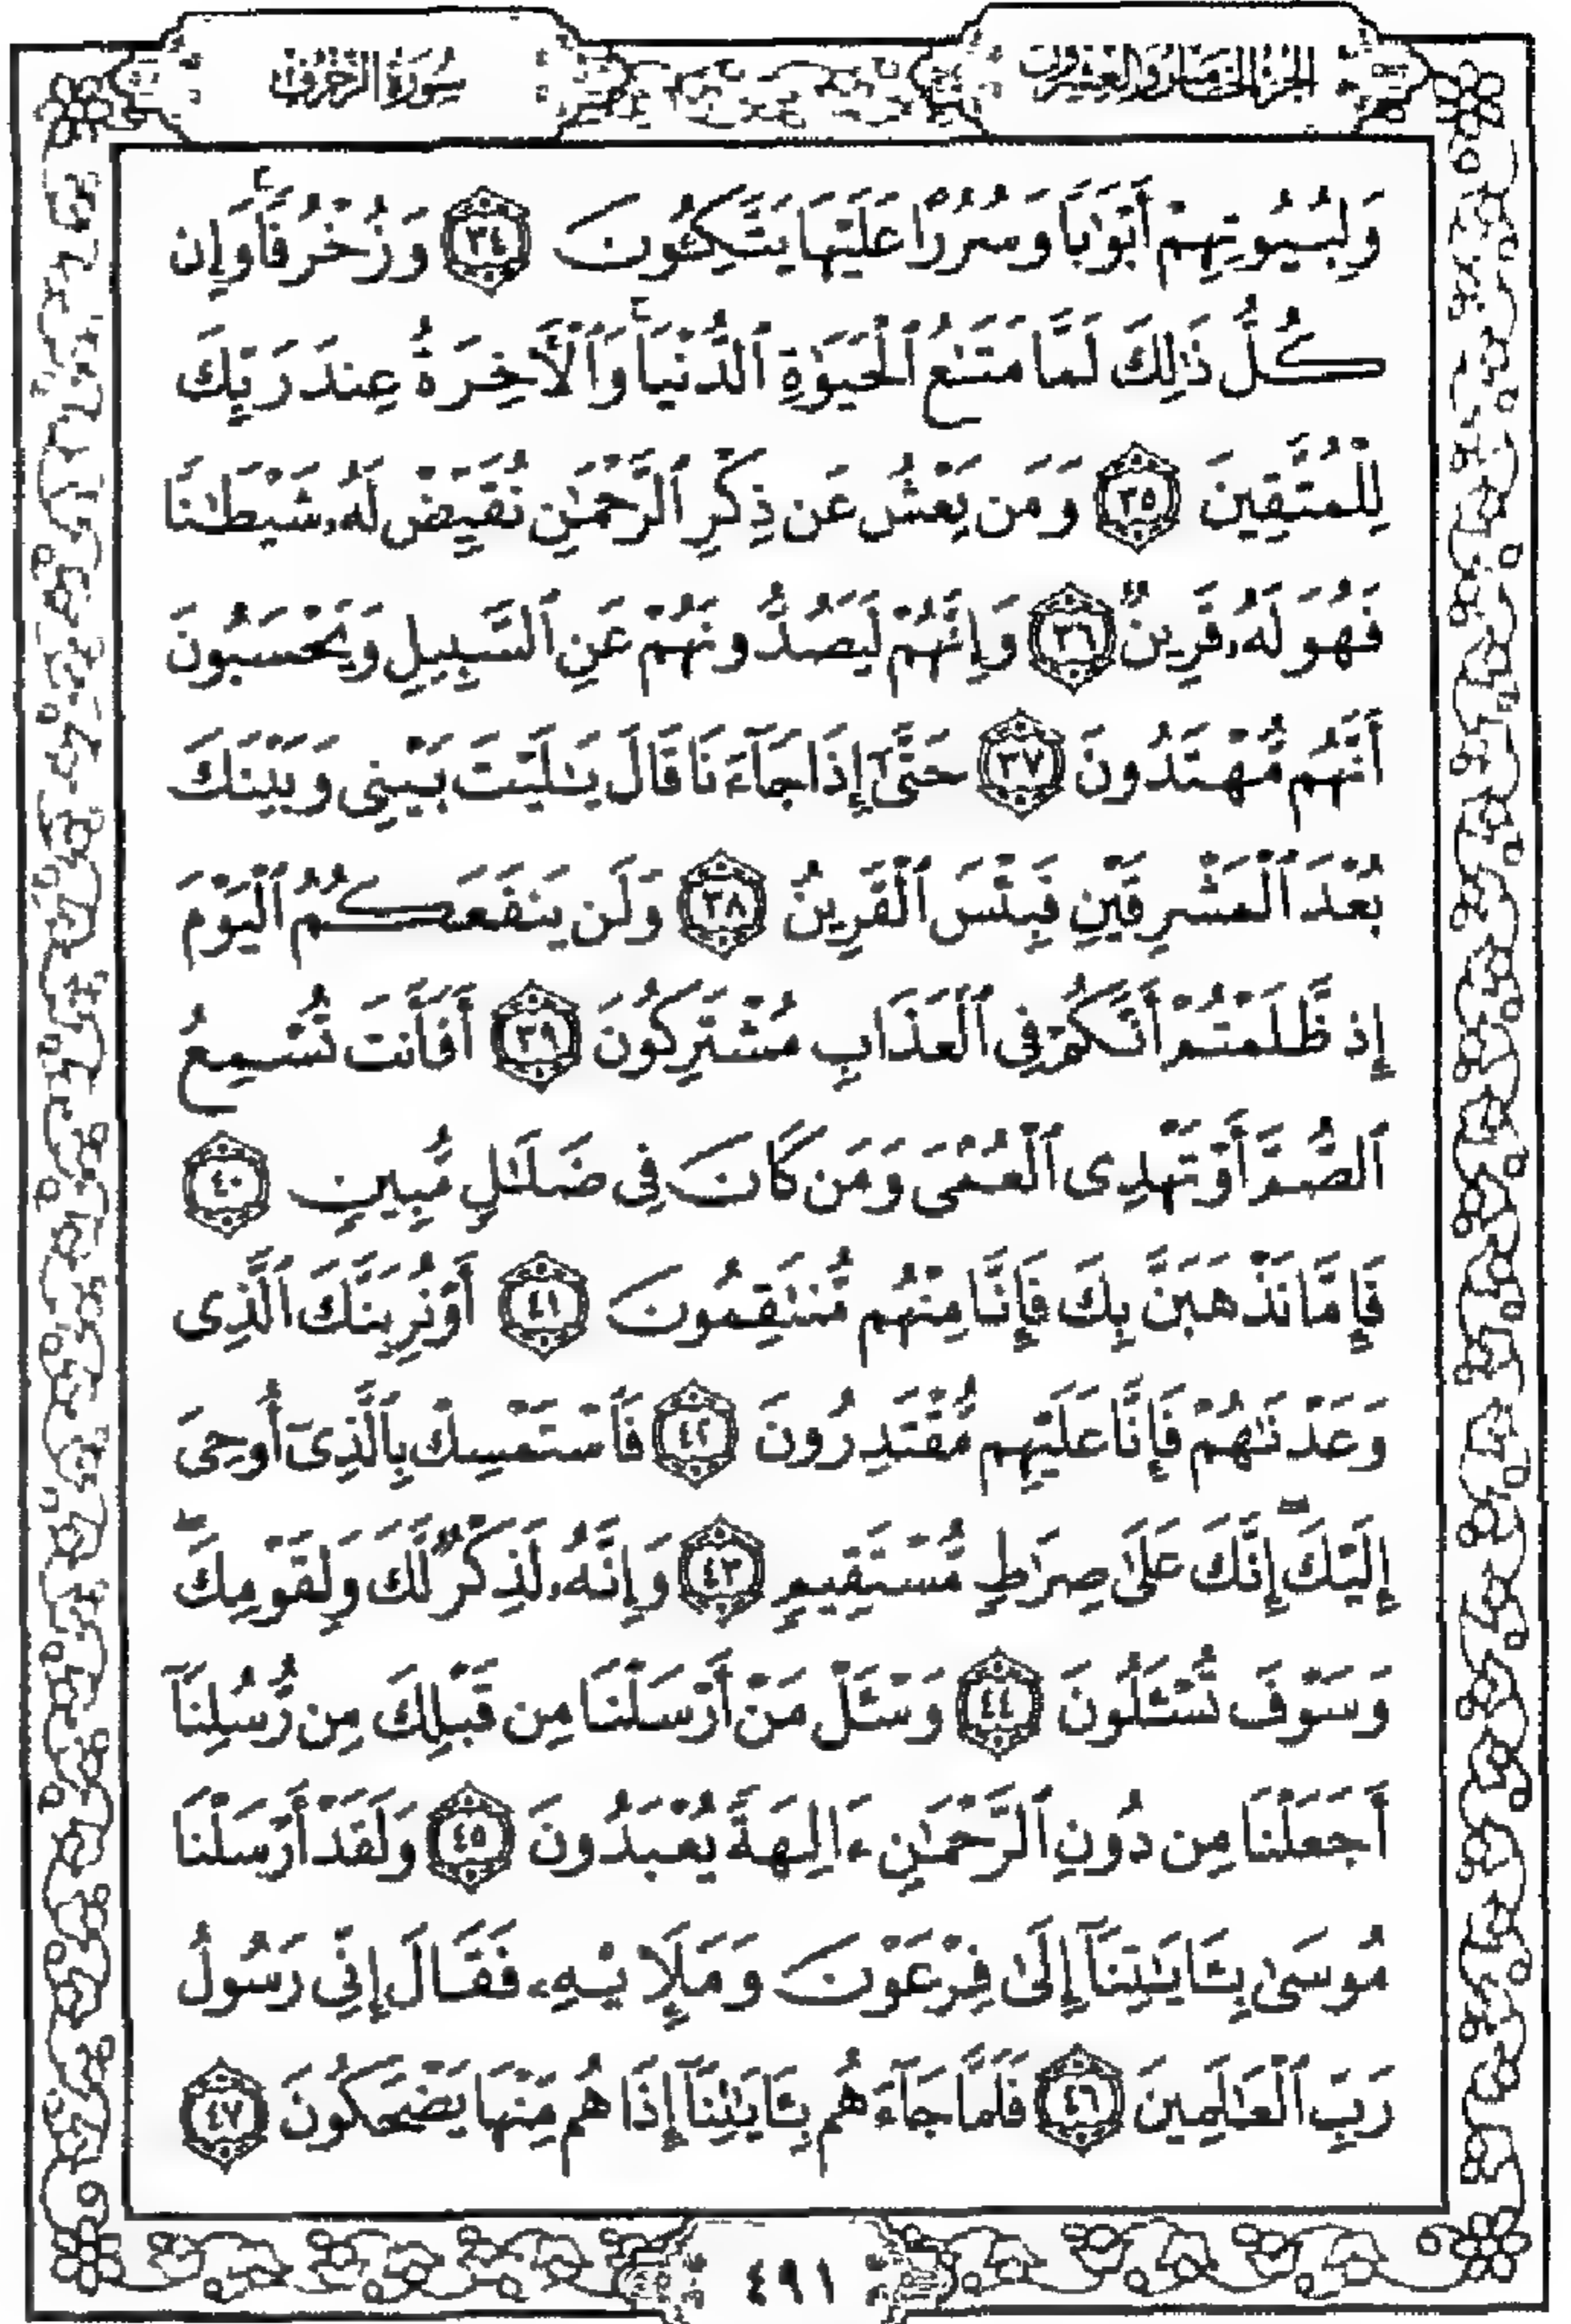 الجزء الخامس والعشرون
سورة الزخرف
وَلِبُيُوتِهِمْ أَبْوَٰبًا وَسُرُرًا عَلَيْهَا يَتَّكِـُٔونَ ٣٤ وَزُخْرُفًا ۚ وَإِن
كُلُّ ذَٰلِكَ لَمَّا مَتَـٰعُ ٱلْحَيَوٰةِ ٱلدُّنْيَا ۚ وَٱلْـَٔاخِرَةُ عِندَ رَبِّكَ
لِلْمُتَّقِينَ ٣٥ وَمَن يَعْشُ عَن ذِكْرِ ٱلرَّحْمَـٰنِ نُقَيِّضْ لَهُۥ شَيْطَـٰنًا
فَهُوَ لَهُۥ قَرِينٌ ٣٦ وَإِنَّهُمْ لَيَصُدُّونَهُمْ عَنِ ٱلسَّبِيلِ وَيَحْسَبُونَ
أَنَّهُم مُّهْتَدُونَ ٣٧ حَتَّىٰٓ إِذَا جَآءَنَا قَالَ يَـٰلَيْتَ بَيْنِى وَبَيْنَكَ
بُعْدَ ٱلْمَشْرِقَيْنِ فَبِئْسَ ٱلْقَرِينُ ٣٨ وَلَن يَنفَعَكُمُ ٱلْيَوْمَ
إِذ ظَّلَمْتُمْ أَنَّكُمْ فِى ٱلْعَذَابِ مُشْتَرِكُونَ ٣٩ أَفَأَنتَ تُسْمِعُ
ٱلصُّمَّ أَوْ تَهْدِى ٱلْعُمْىَ وَمَن كَانَ فِى ضَلَـٰلٍ مُّبِينٍ ٤٠
فَإِمَّا نَذْهَبَنَّ بِكَ فَإِنَّا مِنْهُم مُّنتَقِمُونَ ٤١ أَوْ نُرِيَنَّكَ ٱلَّذِى
وَعَدْنَـٰهُمْ فَإِنَّا عَلَيْهِم مُّقْتَدِرُونَ ٤٢ فَٱسْتَمْسِكْ بِٱلَّذِىٓ أُوحِىَ
إِلَيْكَ ۖ إِنَّكَ عَلَىٰ صِرَٰطٍ مُّسْتَقِيمٍ ٤٣ وَإِنَّهُۥ لَذِكْرٌ لَّكَ وَلِقَوْمِكَ ۖ
وَسَوْفَ تُسْـَٔلُونَ ٤٤ وَسْـَٔلْ مَنْ أَرْسَلْنَا مِن قَبْلِكَ مِن رُّسُلِنَآ
أَجَعَلْنَا مِن دُونِ ٱلرَّحْمَـٰنِ ءَالِهَةً يُعْبَدُونَ ٤٥ وَلَقَدْ أَرْسَلْنَا
مُوسَىٰ بِـَٔايَـٰتِنَآ إِلَىٰ فِرْعَوْنَ وَمَلَإِي۟هِۦ فَقَالَ إِنِّى رَسُولُ
رَبِّ ٱلْعَـٰلَمِينَ ٤٦ فَلَمَّا جَآءَهُم بِـَٔايَـٰتِنَآ إِذَا هُم مِّنْهَا يَضْحَكُونَ ٤٧
٤٩١